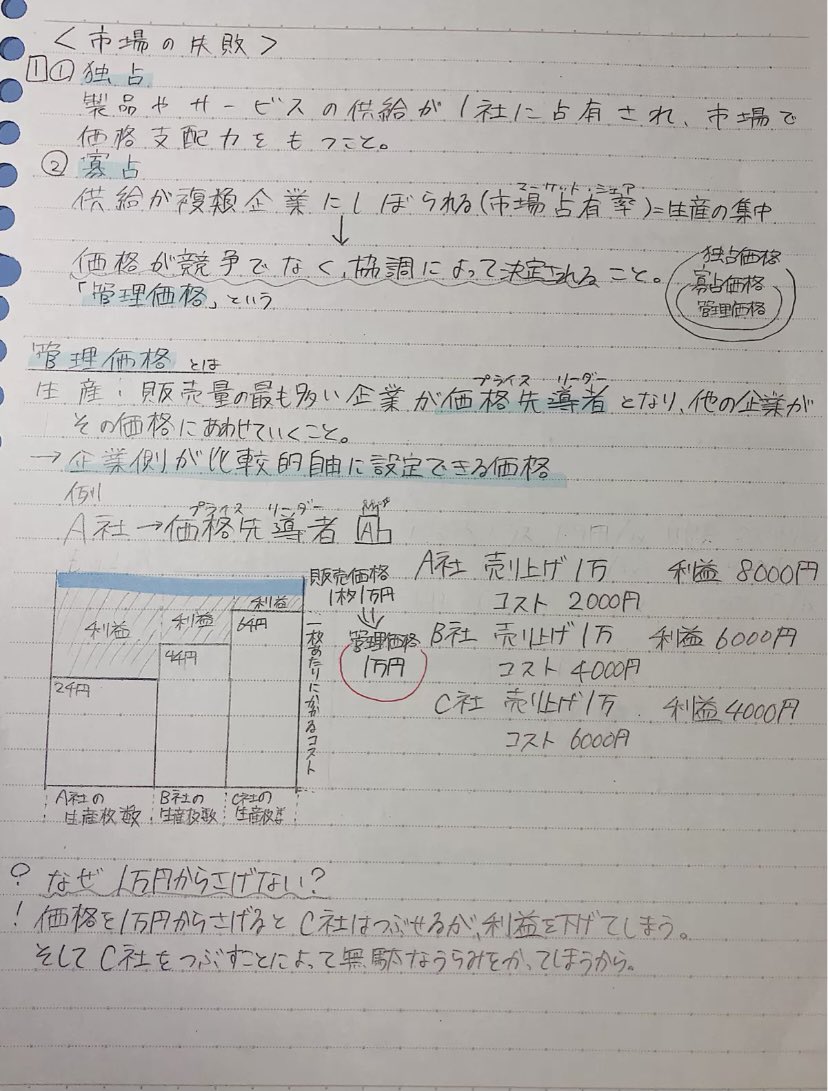 <市場の失敗>
1 ① 独占
製品やサービスの供給が1社に占有され、市場で
価格支配力をもつこと。
② 寡占
マーケット・シェア
供給が複類企業にしぼられる(市場占有率)=生産の集中
↓
価格が競争でなく、協調によって決定されること。
「管理価格」という
独占価格
寡占価格
管理価格
管理価格とは
プライス リーダー
生産・販売量の最も多い企業が価格先導者となり、他の企業が
その価格にあわせていくこと。
→企業側が比較的自由に設定できる価格
例
プライス リーダー
A社→価格先導者 A
販売価格
1枚1万円
管理価格
1万円
利益
利益
利益
2千円
4千円
6千円
一枚あたりにかかるコスト
A社の
生産枚数
B社の
生産枚数
C社の
生産枚数
A社 売り上げ1万 利益 8000円
コスト 2000円
B社 売り上げ1万 利益 6000円
コスト 4000円
C社 売り上げ1万 利益 4000円
コスト 6000円
? なぜ1万円からさげない?
! 価格を1万円からさげるとC社はつぶせるが、利益を下げてしまう。
そしてC社をつぶすことによって無駄なうらみをかってしまうから。